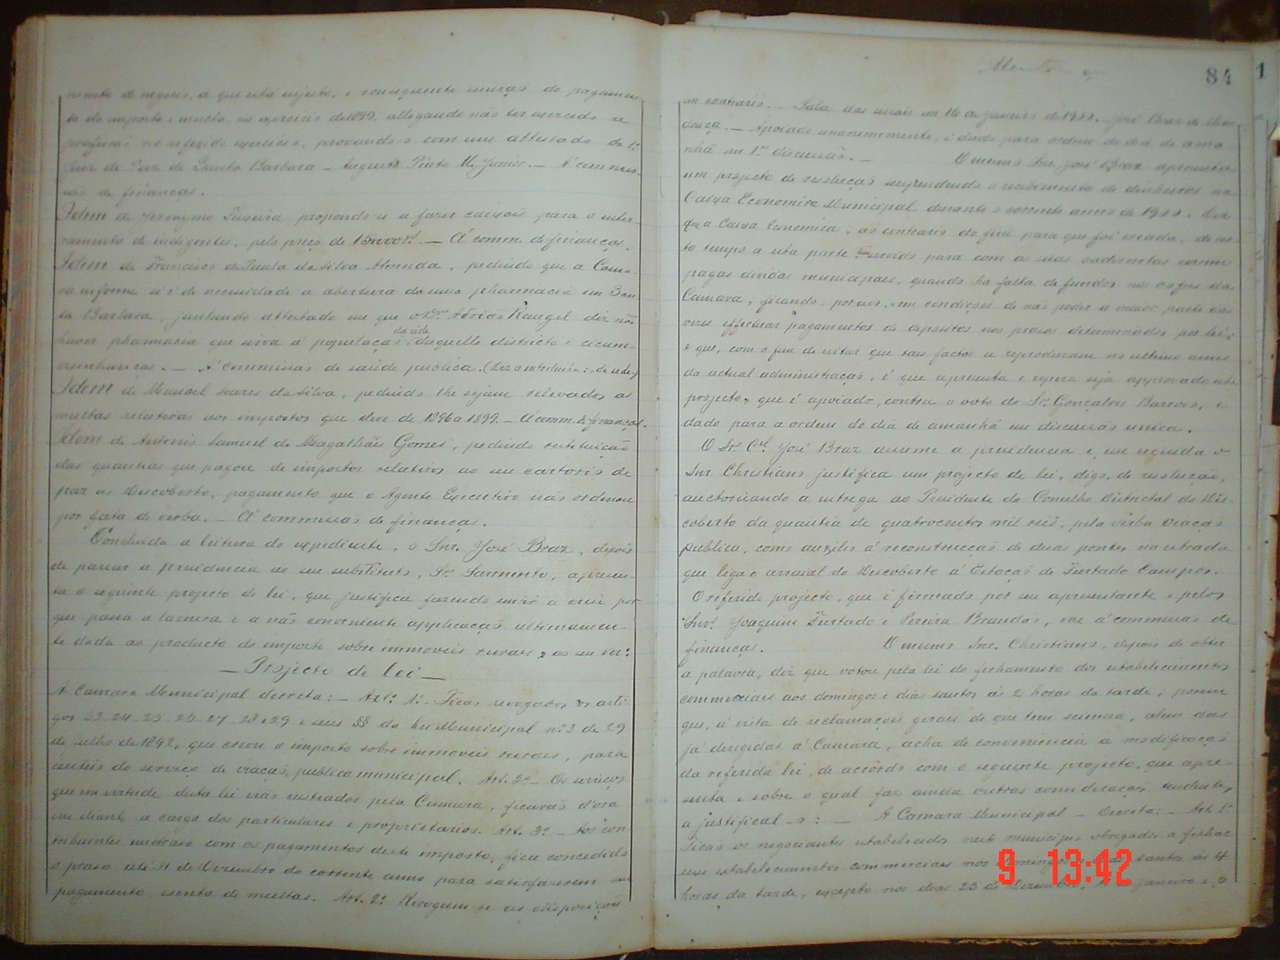 mento de negocio, a que está sujeito, e consequente isenção do pagamen-
to do imposto e multa no exercicio de 1899, allegando não ter exercido a
profissão no referido exercicio, provando-o com um attestado do 1º
Juiz de Paz de Santa Barbara - Augusto Pinto M. Junior. - Á commis-
são de finanças.
Idem de Jeronymo Teixeira, propondo-se a fazer caixões para o enter-
ramento de indigentes, pelo preço de - Á comm. de finanças.
Idem de Francisco de Paula da Silva Almada, pedindo que a Cama-
ra informe si é de necessidade a abertura de uma pharmacia em San-
ta Barbara, juntando attestado em que o Dr. Rangel diz não
haver pharmacia que sirva á população daquelle districto e circum-
vizinhanças. - Á commissão de saúde publica.
da séde
Idem de Manoel Soares da Silva, pedindo lhe sejam relevados as
multas relativas aos impostos que deve de 1896 a 1899. - Á comm. de finanças.
Idem de Antonio Samuel de Magalhães Gomes, pedindo restituição
das quantias que pagou de impostos relativos ao seu cartorio de
paz no Descoberto, pagamento que o Agente Executivo não ordenou
por falta de verba. - Á commissão de finanças.
Concluida a leitura do expediente, o Snr. José Braz, depois
de passar a presidencia ao seu substituto, Dr. Sarmento, apresen-
ta o seguinte projecto de lei, que justifica fazendo sentir a crise por
que passa a lavoura e a não conveniente applicação ultimamen-
te dada ao producto do imposto sobre immoveis ruraes
- Projecto de lei -
A Camara Municipal decreta: - Art. 1º Ficão revogados os arti-
gos 23-24-25-26-27-28 e 29 e seus §§ da lei Municipal nº 3 de 29
de Julho de 1892, que creou o imposto sobre immoveis ruraes, para
custeio do serviço de viação publica municipal. Art. 2º - Os serviços
que em virtude desta lei erão custeados pela Camara, ficarão d'ora
em diante a cargo dos particulares e proprietarios. Art. 3º - Aos con-
tribuintes em atraso com os pagamentos deste imposto, fica concedido
o praso até 31 de Dezembro do corrente anno para satisfazerem seu
pagamento, isento de multas. Art. 2º Revogam-se as disposições
84
em contrario. - Sala das sessões em 16 de Janeiro de José Braz de Men-
donça. - Apoiado unanimemente, é dado para ordem do dia de ama-
nhã em 1ª discussão. - O mesmo Snr. José Braz apresenta
um projecto de resolução suspendendo o recebimento de dinheiros na
Caixa Economica Municipal durante o corrente anno de Diz
que a Caixa Economica, ao contrario do fim para que foi creada, de mui-
to tempo a esta parte servido para com as suas cadernetas serem
pagas dividas municipaes, quando ha falta de fundos nos cofres da
Camara, ficando, porém, em condições de não poder a maior parte das
vezes effectuar pagamentos de depositos nos prasos determinados por lei;
e que, com o fim de evitar que taes factos se reproduzam no ultimo anno
da actual administração, é que apresenta e espera seja approvado este
projecto, que é apoiado, contra o voto do Dr. Gonçalves Barroso, e
dado para a ordem do dia de amanhã em discussão unica.
O Sr. Cel José Braz assume a presidencia e, em seguida o
Snr. Christiano justifica um projecto de lei, digo, de resolução,
auctorisando a entrega ao Presidente do Conselho Districtal do Des-
coberto da quantia de quatrocentos mil reis, pela verba viação
publica, como auxilio á reconstrucção de duas pontes na estrada
que liga o arraial do Descoberto á Estação de Furtado Campos.
O referido projecto, que é firmado por seu apresentante e pelos
Snrs. Joaquim Furtado e Pereira Brandão, vae á commissão de
finanças. O mesmo Snr. Christiano, depois de obter
a palavra, diz que votou pela lei do fechamento dos estabelecimentos
commerciaes aos domingos e dias santos ás 2 horas da tarde; porém
que, á vista de reclamações geraes de que tem sciencia, alem das
já dirigidas á Camara, acha de conveniencia a modificação
da referida lei, de accôrdo com o seguinte projecto, que apre-
senta e sobre o qual faz ainda outras considerações tendentes
a justifical-o: - A Camara Municipal - Decreta: - Art. 1º
Ficão os negociantes estabelecidos neste municipio obrigados a fechar
seus estabelecimentos commerciaes nos domingos e dias santos ás 4
horas da tarde, excepto nos dias 25 de Dezembro, 1º de Janeiro e
9 13:42
1